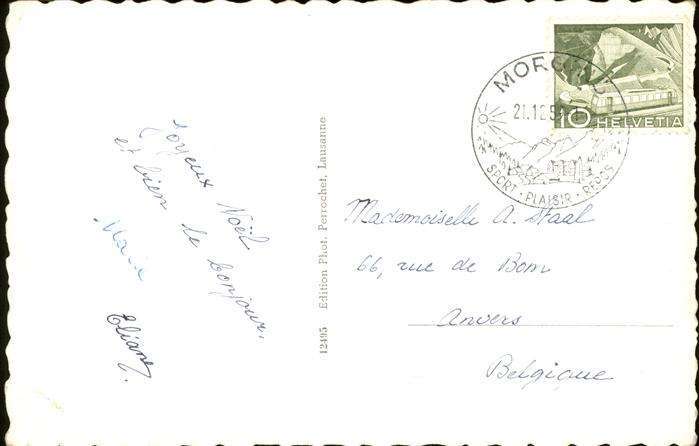 Joyeux Noël
et bien le bonjour.
Eliane.
12495 Edition Phot. Perrochet, Lausanne
21.12.5
SPORT · PLAISIR · REPOS
10 HELVETIA
Mademoiselle A. Staal
66, rue de Bom
Anvers
Belgique